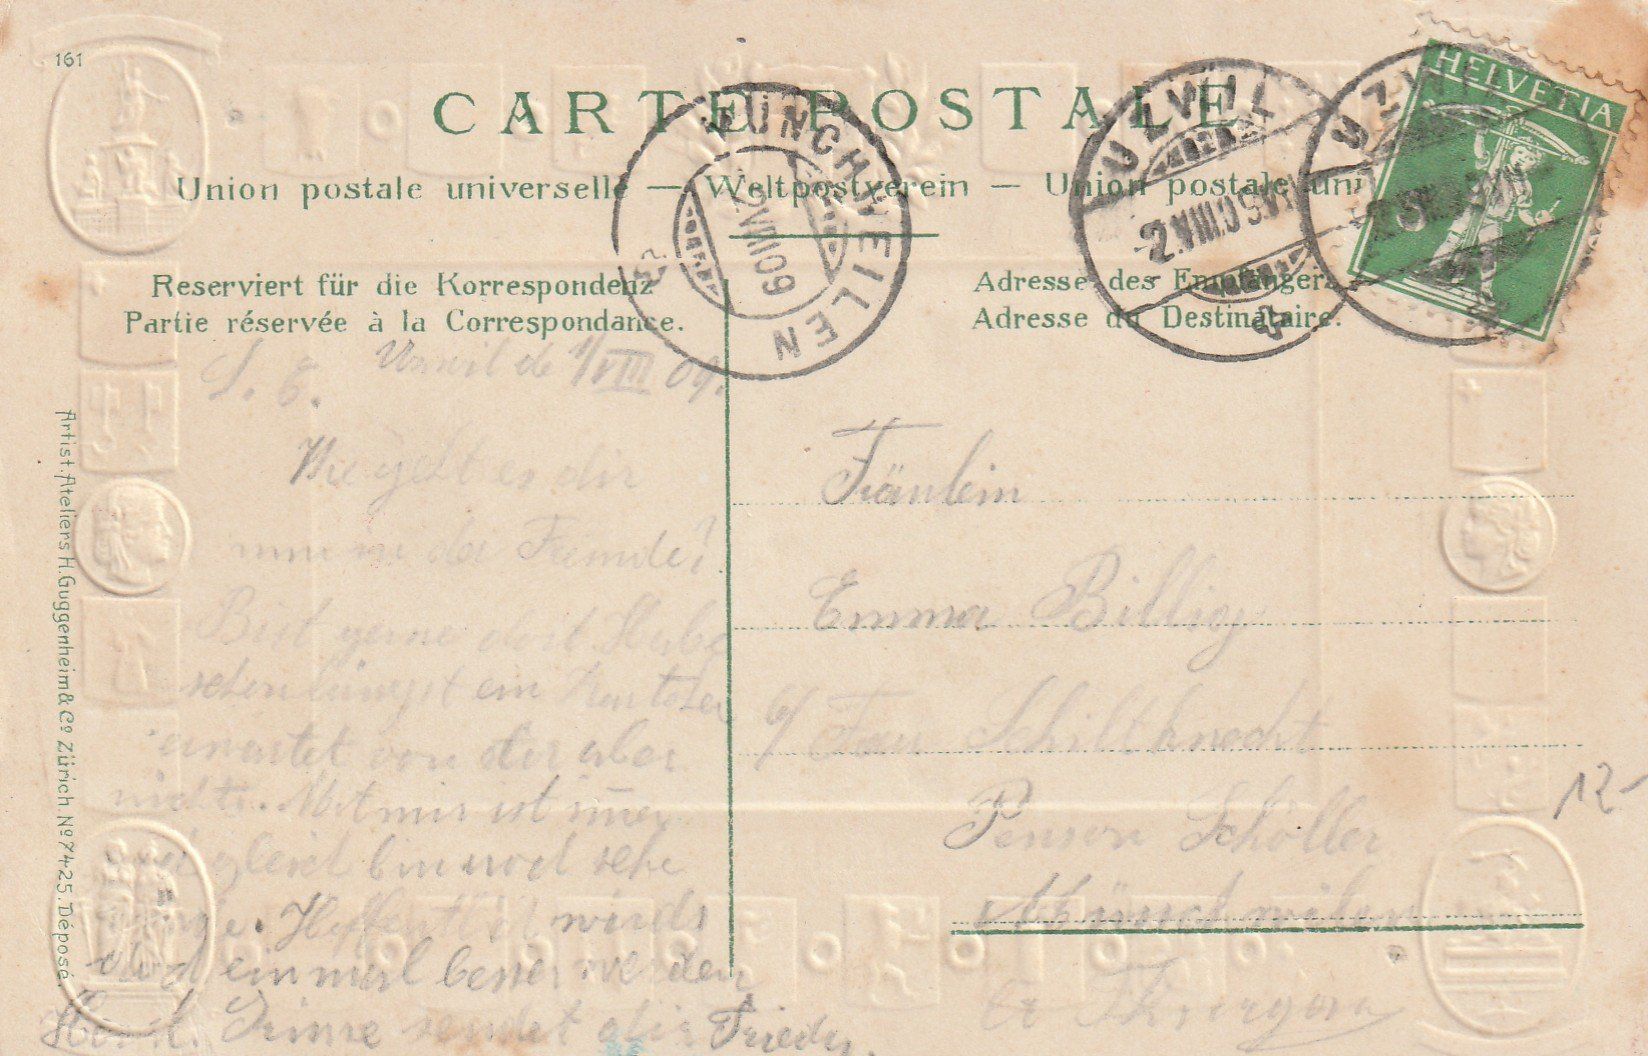 161
CARTE POSTALE
Union postale universelle — Weltpostverein — Union postale uni
Reserviert für die Korrespondenz
Partie réservée à la Correspondance.
Adresse des Empfängers
Adresse du Destinataire.
HELVETIA
MÜNCHWEILEN
2 VIII 09
UZWIL
2.VIII.09.VI
UZWIL
L. E. de 1/VIII 09.
Wie geht es dir
in der Fremde?
Bist gerne dort Habe
schon längst ein
erwartet von dir aber
nichts. Mit mir ist imer
gleich bin noch sehr
Hoffentlich wirds
einmal besser werden
sendet dir Frieda.
Fräulein
Emma Billig
b/ Frau Schiltknecht
Pension Schöller
Münchwilen
Ct Thurgau
12-
Artist. Ateliers H. Guggenheim & Co Zürich. No 7425. Déposé.